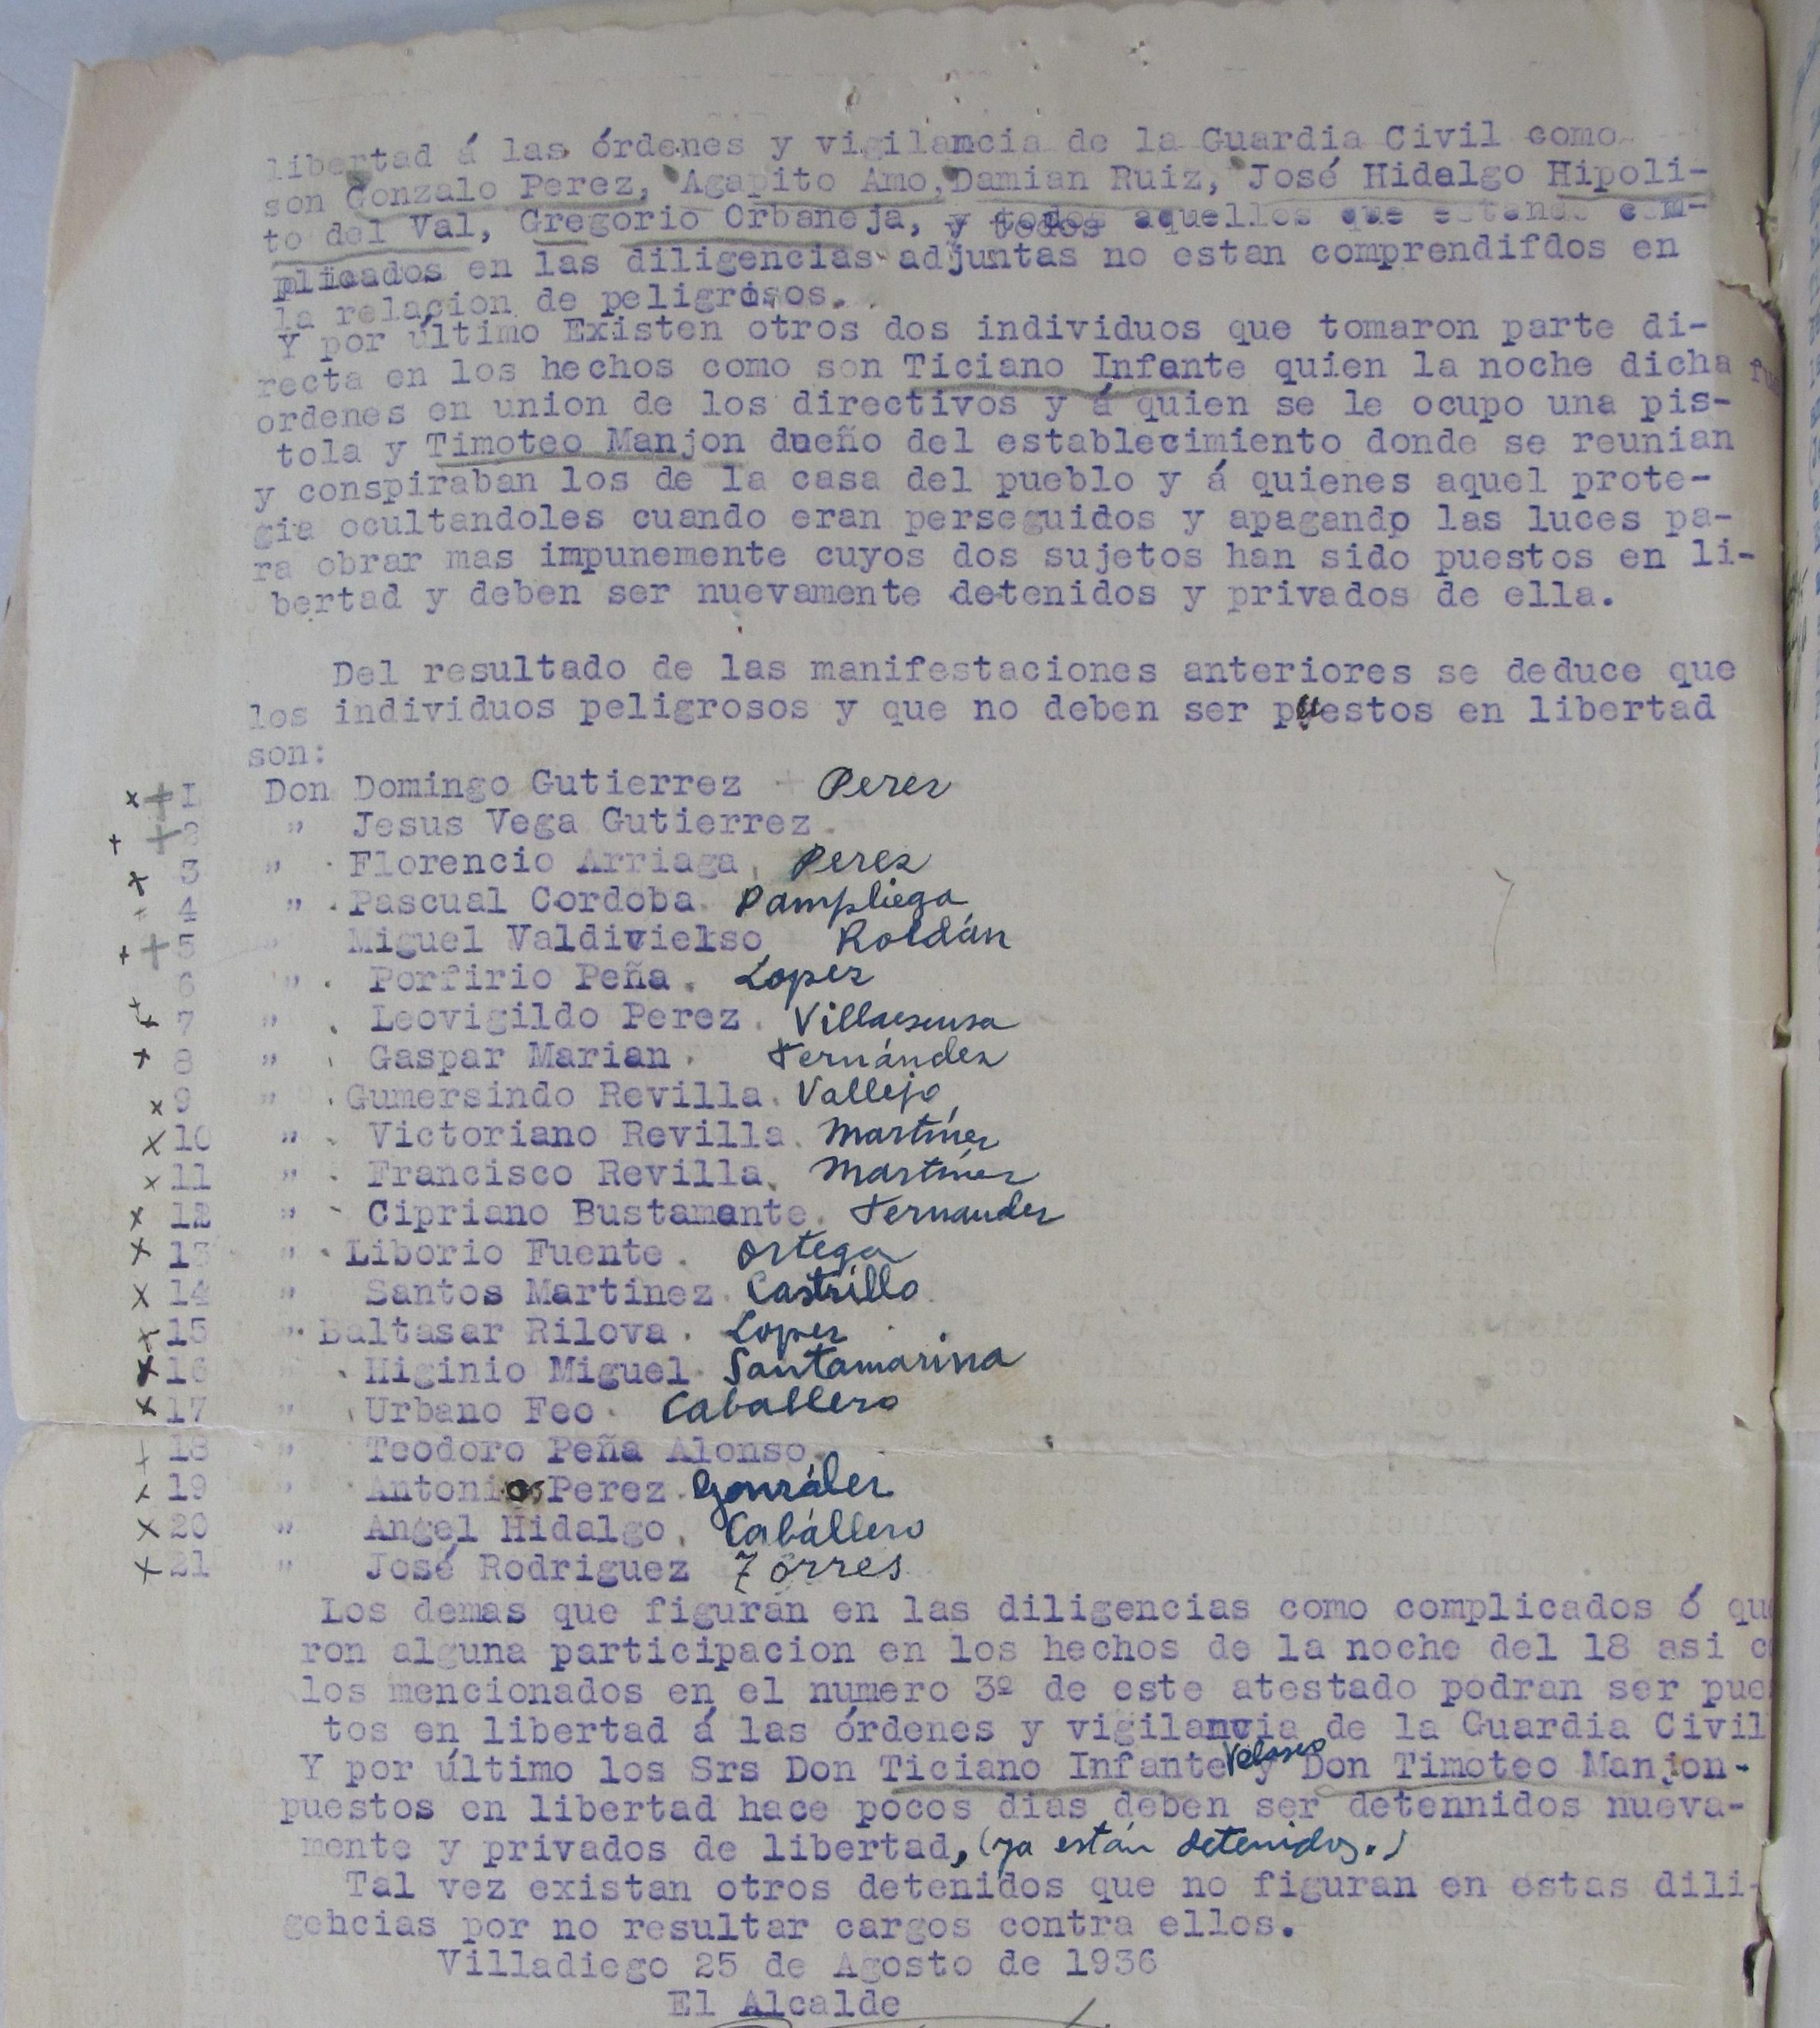 libertad á las órdenes y vigilancia de la Guardia Civil como
son Gonzalo Perez, Agapito Amo, Damian Ruiz, José Hidalgo Hipoli-
to del Val, Gregorio Orbaneja, y todos aquellos que estando com-
plicados en las diligencias adjuntas no estan comprendifdos en
la relacion de peligrosos.
Y por último Existen otros dos individuos que tomaron parte di-
recta en los hechos como son Ticiano Infante quien la noche dicha
ordenes en union de los directivos y á quien se le ocupo una pis-
tola y Timoteo Manjon dueño del establecimiento donde se reunian
y conspiraban los de la casa del pueblo y á quienes aquel prote-
gia ocultandoles cuando eran perseguidos y apagando las luces pa-
ra obrar mas impunemente cuyos dos sujetos han sido puestos en li-
bertad y deben ser nuevamente detenidos y privados de ella.
Del resultado de las manifestaciones anteriores se deduce que
los individuos peligrosos y que no deben ser puestos en libertad
son:
x + 1 Don Domingo Gutierrez Perez
+ + 2 " Jesus Vega Gutierrez.
+ 3 " Florencio Arriaga, Perez
+ 4 " Pascual Cordoba. Pampliega
+ + 5 " Miguel Valdivielso Roldán
6 " Porfirio Peña. Lopez
+ x 7 " Leovigildo Perez. Villaescusa
+ 8 " Gaspar Marian. Fernández
x 9 " Gumersindo Revilla. Vallejo
x 10 " Victoriano Revilla. Martínez
x 11 " Francisco Revilla. Martínez
x 12 " Cipriano Bustamante. Fernandez
x 13 " Liborio Fuente. Ortega
x 14 " Santos Martinez. Castrillo
x 15 " Baltasar Rilova. Lopez
x 16 " Higinio Miguel. Santamarina
x 17 " Urbano Feo. Caballero
+ 18 " Teodoro Peña Alonso.
x 19 " Antonio Perez. González
x 20 " Angel Hidalgo. Caballero
x 21 " José Rodriguez Torres
Los demas que figuran en las diligencias como complicados ó qu
ron alguna participacion en los hechos de la noche del 18 asi c
los mencionados en el numero 3º de este atestado podran ser pue
tos en libertad á las órdenes y vigilancia de la Guardia Civil
Y por último los Srs Don Ticiano Infante Velasco y Don Timoteo Manjon-
puestos en libertad hace pocos dias deben ser detennidos nueva-
mente y privados de libertad, (ya están detenidos.)
Tal vez existan otros detenidos que no figuran en estas dili-
gehcias por no resultar cargos contra ellos.
Villadiego 25 de Agosto de 1936
El Alcalde